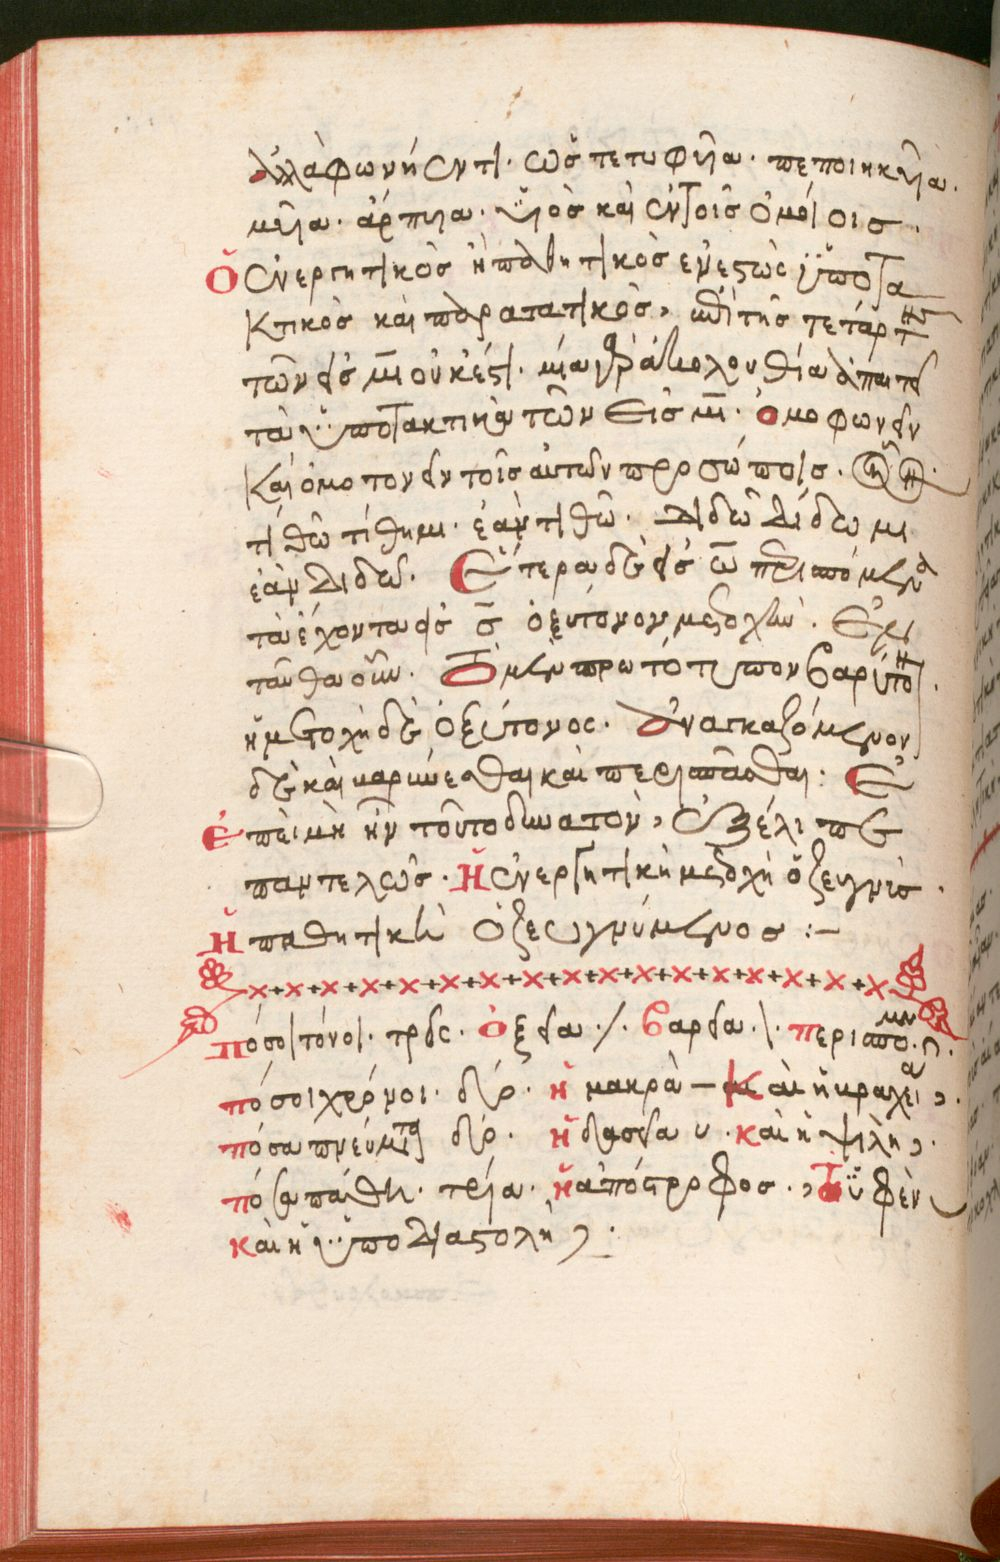 ἀλλὰ φωνήεντι· ὡς τετυφυῖα· πεποιηκυῖα·
μυῖα· ἅρπυια· υἱὸς καὶ ἐν τοῖς ὁμοίοις·
Ὁ ἐνεργητικὸς ἢ παθητικὸς ἐνεστὼς ὑποτα
κτικὸς καὶ παρατατικὸς, τῆς τετάρτης
τῶν εἰς μι οὐκ ἔστι· ἀκολουθία ἀπαιτεῖ
τὰ ὑποτακτικὰ τῶν εἰς μι· ὁμοφωνεῖν
καὶ ὁμοτονεῖν τοῖς αὐτῶν προσώποις·
τιθῶ τίθημι· ἐὰν τιθῶ· διδῶ δίδωμι
ἐὰν διδῶ· Ἕτερα δὲ εἰς ω περισπώμενα
τὰ ἔχοντα εἰς ς ὀξύτονον μετοχὴν·
ἐνταῦθα οὖν· Τὸ μὲν πρωτότυπον βαρύτονον·
ἡ μετοχὴ δὲ ὀξύτονος· Ἀναγκαζόμενον
δὲ καὶ βαρύνεσθαι καὶ περισπᾶσθαι:
ἐπεὶ μὴ ἦν τοῦτο δυνατὸν, ἐξέλιπε
παντελῶς· Ἡ ἐνεργητικὴ μετοχὴ ὁ ζευγνὺς·
Ἡ παθητικὴ ὁ ζευγνύμενος :–
Πόσοι τόνοι· τρεῖς· ὀξεῖα ·/· βαρεῖα ·\· περισπωμένη·
πόσοι χρόνοι· δύο· ἡ μακρὰ – καὶ ἡ βραχεῖα
πόσα πνεύματα δύο· ἡ δασεῖα· καὶ ἡ ψιλὴ
πόσα πάθη· τρία· ἡ ἀπόστροφος·, ἡ ὑφὲν
καὶ ἡ ὑποδιαστολὴ , ·